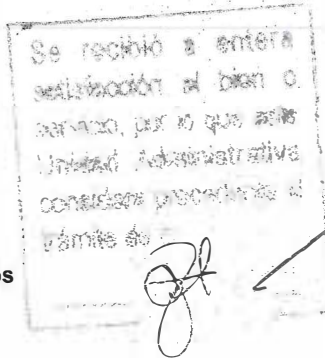 Se recibió a entera
satisfacción el bien o
servicio, por lo que esta
Unidad Administrativa
considera procedente el
trámite de
os